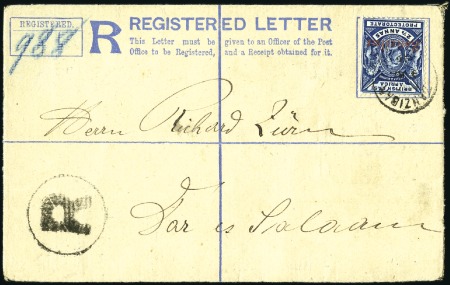 REGISTERED.
988
R
REGISTERED LETTER
This Letter must be given to an Officer of the Post
Office to be Registered, and a Receipt obtained for it.
2½ ANNAS
PROTECTORATE
BRITISH
EAST
AFRICA
ZANZIBAR
Herrn Richard Zürn
R
Dar es Salaam